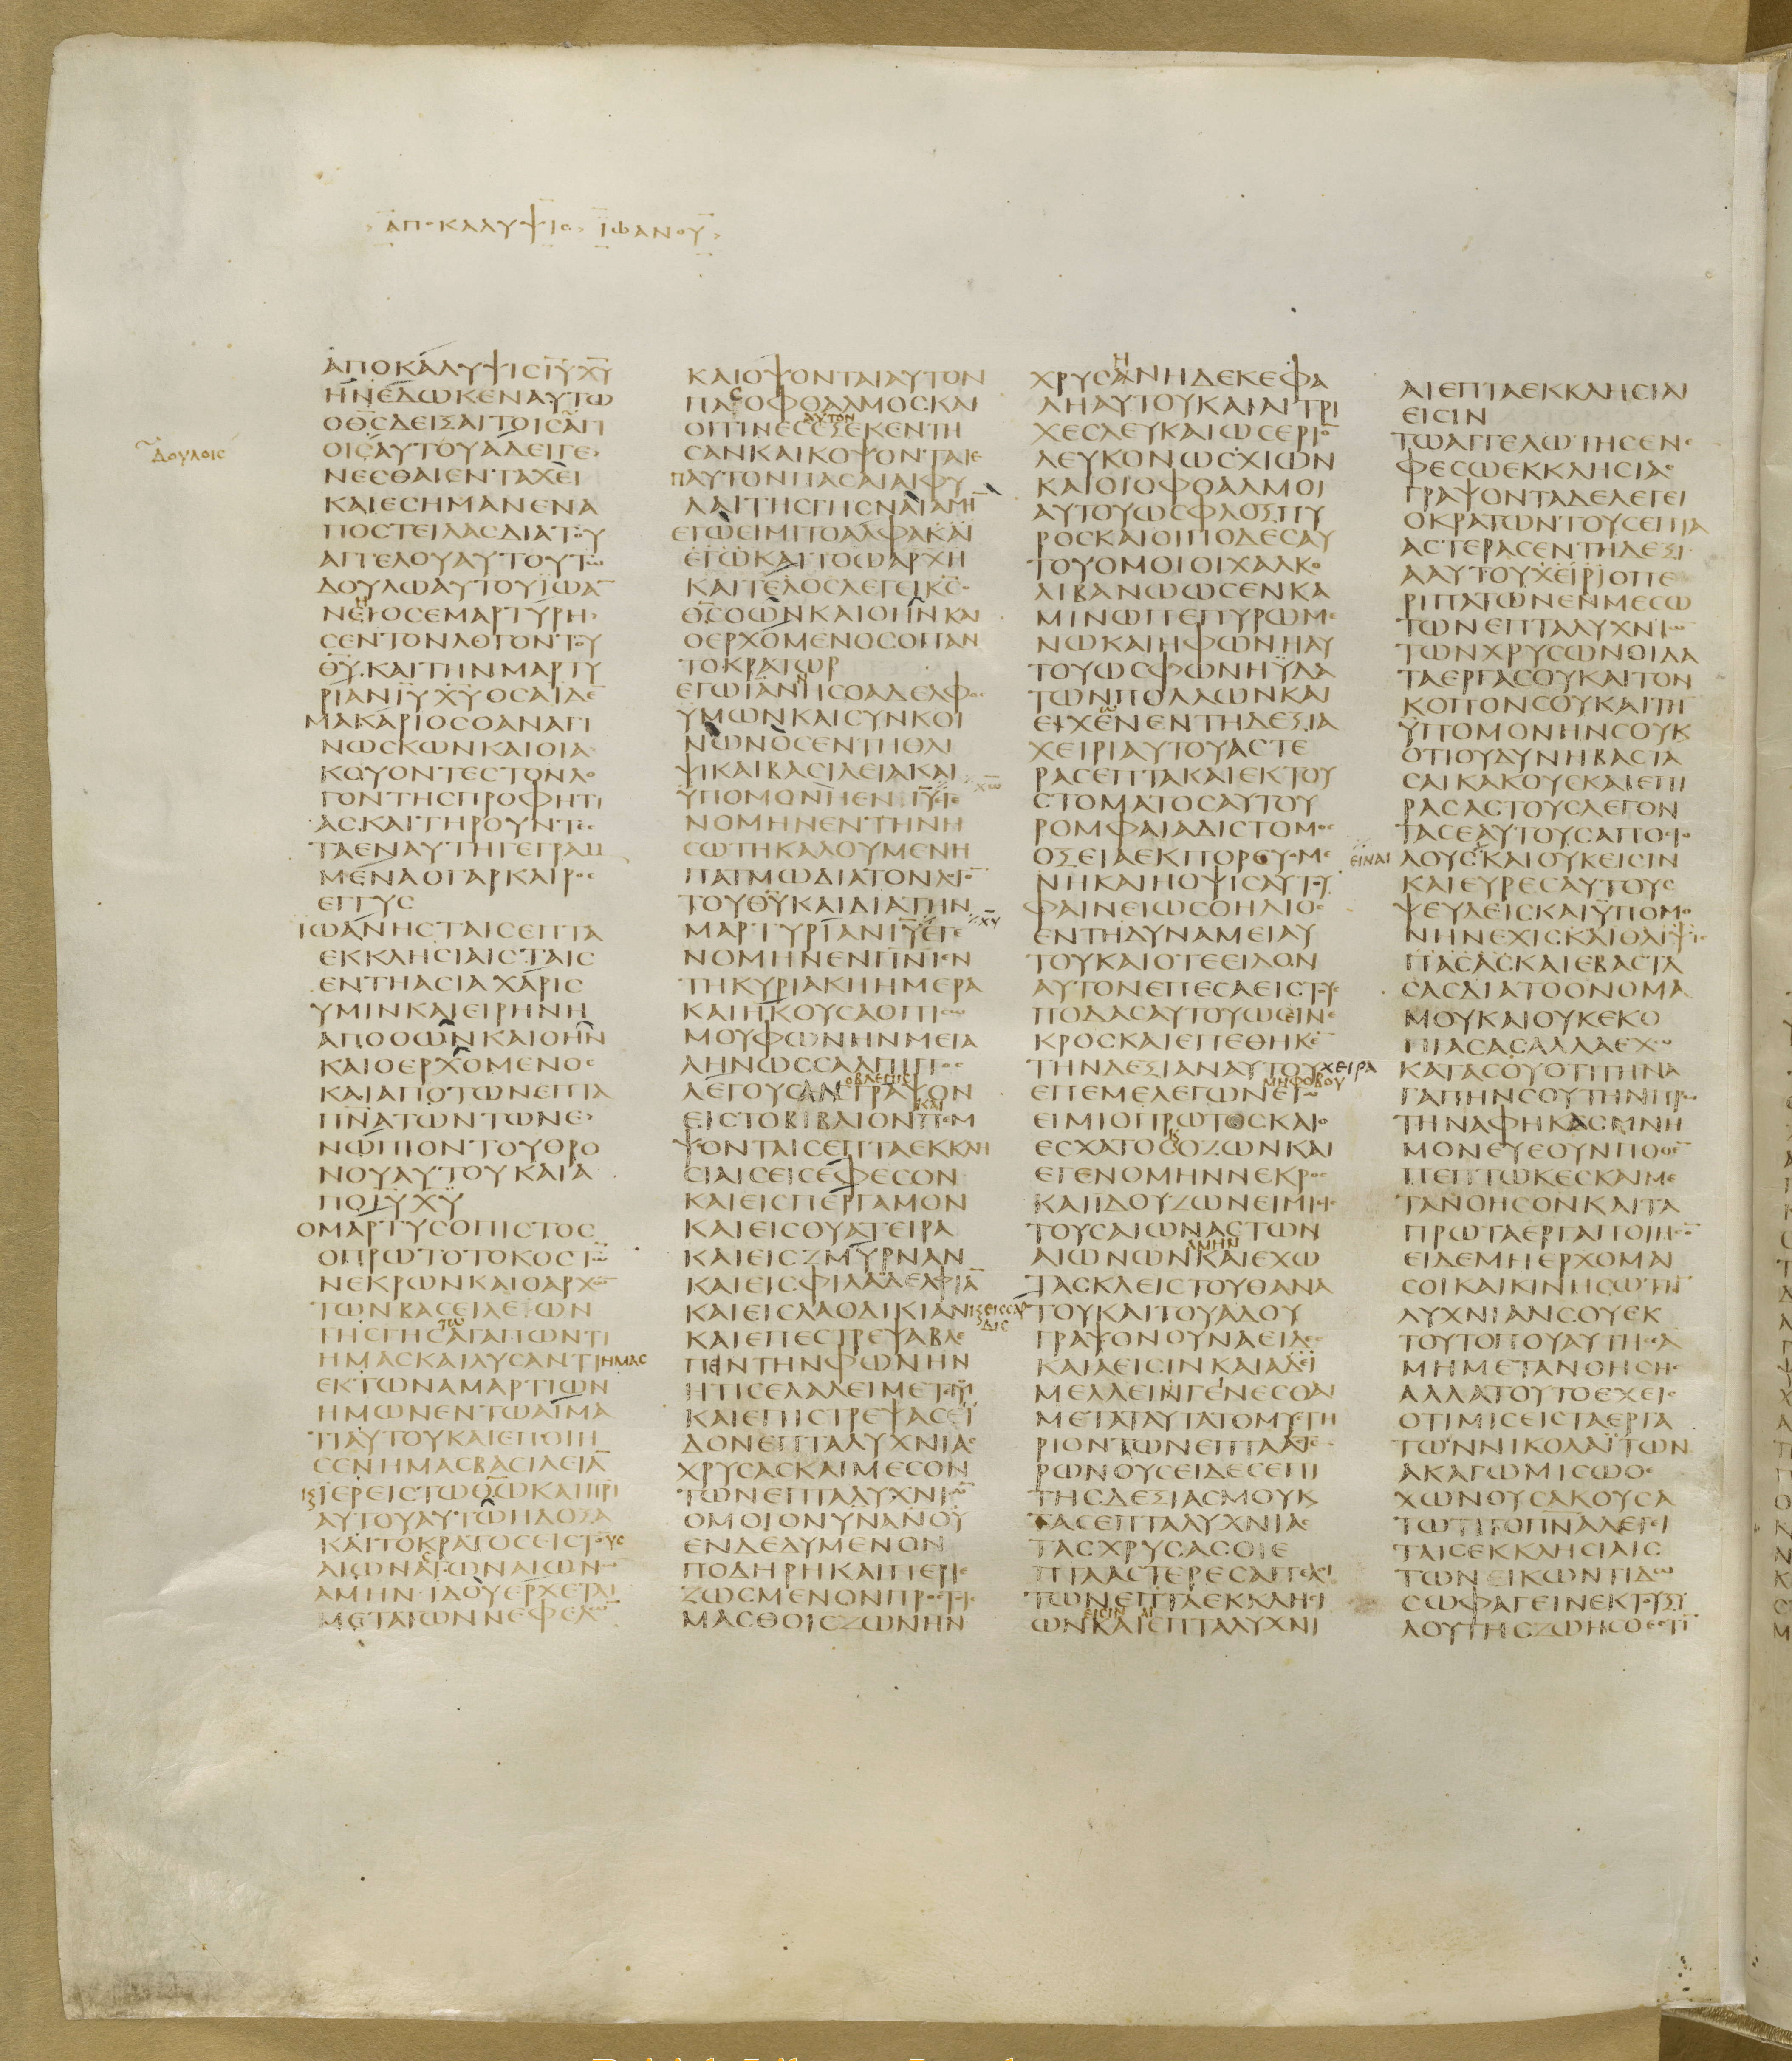 ΑΠΟΚΑΛΥΨΙΣ ΙΩΑΝΟΥ
ΑΠΟΚΑΛΥΨΙCΙΥΧΥ
ΗΝΕΔΩΚΕΝΑΥΤΩ
ΟΘCΔΕΙΞΑΙΤΟΙCΑΓΙ
ΔΟΥΛΟΙC
ΟΙCΑΥΤΟΥΑΔΕΙΓΕ
ΝΕCΘΑΙΕΝΤΑΧΕΙ
ΚΑΙΕCΗΜΑΝΕΝΑ
ΠΟCΤΕΙΛΑCΔΙΑΤΟΥ
ΑΓΓΕΛΟΥΑΥΤΟΥΤΩ
ΔΟΥΛΩΑΥΤΟΥΪΩΑ
ΝΕΙΟCΕΜΑΡΤΥΡΗ
CΕΝΤΟΝΛΟΓΟΝΤΟΥ
ΘΥΚΑΙΤΗΝΜΑΡΤΥ
ΡΙΑΝΙΥΧΥΟCΑΙΔΕ
ΜΑΚΑΡΙΟCΟΑΝΑΓΙ
ΝΩCΚΩΝΚΑΙΟΙΑ
ΚΟΥΟΝΤΕCΤΟΝΛΟ
ΓΟΝΤΗCΠΡΟΦΗΤΙ
ΑCΚΑΙΤΗΡΟΥΝΤΕC
ΤΑΕΝΑΥΤΗΓΕΓΡΑΜ
ΜΕΝΑΟΓΑΡΚΑΙΡΟC
ΕΓΓΥC
ΙΩΑΝΗCΤΑΙCΕΠΤΑ
ΕΚΚΛΗCΙΑΙCΤΑΙC
ΕΝΤΗΑCΙΑΧΑΡΙC
ΥΜΙΝΚΑΙΕΙΡΗΝΗ
ΑΠΟΟΩΝΚΑΙΟΗΝ
ΚΑΙΟΕΡΧΟΜΕΝΟC
ΚΑΙΑΠΟΤΩΝΕΠΤΑ
ΠΝΑΤΩΝΤΩΝΕ
ΝΩΠΙΟΝΤΟΥΘΡΟ
ΝΟΥΑΥΤΟΥΚΑΙΑ
ΠΟΙΥΧΥ
ΟΜΑΡΤΥCΟΠΙCΤΟC
ΟΠΡΩΤΟΤΟΚΟCΤΩ
ΝΕΚΡΩΝΚΑΙΟΑΡΧΩ
ΤΩΝΒΑCΕΙΛΕΙΩΝ
ΤΗCΓΗCΑΓΑΠΩΝΤΙ
ΗΜΑCΚΑΙΛΥCΑΝΤΙΗΜΑC
ΕΚΤΩΝΑΜΑΡΤΙΩΝ
ΗΜΩΝΕΝΤΩΑΙΜΑ
ΤΙΑΥΤΟΥΚΑΙΕΠΟΙΗ
CΕΝΗΜΑCΒΑCΙΛΕΙΑ
ΙΕΡΕΙCΤΩΘΩΚΑΙΠΡΙ
ΑΥΤΟΥΑΥΤΩΗΔΟΞΑ
ΚΑΙΤΟΚΡΑΤΟCΕΙCΤΟΥC
ΑΙΩΝΑCΤΩΝΑΙΩΝΩ
ΑΜΗΝΙΔΟΥΕΡΧΕΤΑΙ
ΜΕΤΑΤΩΝΝΕΦΕΛΩ
ΚΑΙΟΨΟΝΤΑΙΑΥΤΟΝ
ΠΑCΟΦΘΑΛΜΟCΚΑΙ
ΑΥΤΟΝ
ΟΙΤΙΝΕCΕΞΕΚΕΝΤΗ
CΑΝΚΑΙΚΟΨΟΝΤΑΙΕ
ΠΑΥΤΟΝΠΑCΑΙΑΙΦΥ
ΛΑΙΤΗCΓΗCΝΑΙΑΜΗ
ΕΓΩΕΙΜΙΤΟΑΛΦΑΚΑΙ
ΕΓΩΚΑΙΤΟΩΑΡΧΗ
ΚΑΙΤΕΛΟCΛΕΓΕΙΚC
ΟΘCΟΩΝΚΑΙΟΗΝΚΑΙ
ΟΕΡΧΟΜΕΝΟCΟΠΑΝ
ΤΟΚΡΑΤΩΡ
ΕΓΩΪΑΝΗCΟΑΔΕΛΦΟC
ΥΜΩΝΚΑΙCΥΝΚΟΙ
ΝΩΝΟCΕΝΤΗΘΛΙ
ΨΙΚΑΙΒΑCΙΛΕΙΑΚΑΙ
ΥΠΟΜΟΝΗΕΝΙΥΕΓΕ
ΝΟΜΗΝΕΝΤΗΝΗ
CΩΤΗΚΑΛΟΥΜΕΝΗ
ΠΑΤΜΩΔΙΑΤΟΝΛΟΓΟ
ΤΟΥΘΥΚΑΙΔΙΑΤΗΝ
ΜΑΡΤΥΡΙΑΝΙΥΕΓΕ
ΝΟΜΗΝΕΝΠΝΙΕΝ
ΤΗΚΥΡΙΑΚΗΗΜΕΡΑ
ΚΑΙΗΚΟΥCΑΟΠΙCΩ
ΜΟΥΦΩΝΗΝΜΕΓΑ
ΛΗΝΩCCΑΛΠΙΓΓΟC
ΛΕΓΟΥCΑΝΟΒΛΕΠΙCΓΡΑΨΟΝ
ΕΙCΤΟΒΙΒΛΙΟΝΚΑΙΠΕΜ
ΨΟΝΤΑΙCΕΠΤΑΕΚΚΛΗ
CΙΑΙCΕΙCΕΦΕCΟΝ
ΚΑΙΕΙCΠΕΡΓΑΜΟΝ
ΚΑΙΕΙCΘΥΑΤΕΙΡΑ
ΚΑΙΕΙCΖΜΥΡΝΑΝ
ΚΑΙΕΙCΦΙΛΑΔΕΛΦΙΑ
ΚΑΙΕΙCΛΑΟΔΙΚΙΑΝ
ΚΑΙΕΠΕCΤΡΕΨΑΒΛΕ
ΠΕΙΝΤΗΝΦΩΝΗΝ
ΗΤΙCΕΛΑΛΕΙΜΕΤΕΜΟΥ
ΚΑΙΕΠΙCΤΡΕΨΑCΕΙ
ΔΟΝΕΠΤΑΛΥΧΝΙΑC
ΧΡΥCΑCΚΑΙΜΕCΟΝ
ΤΩΝΕΠΤΑΛΥΧΝΙΩ
ΟΜΟΙΟΝΥΝΑΝΟΥ
ΕΝΔΕΔΥΜΕΝΟΝ
ΠΟΔΗΡΗΚΑΙΠΕΡΙΕ
ΖΩCΜΕΝΟΝΠΡΟCΤΟΙC
ΜΑCΘΟΙCΖΩΝΗΝ
ΧΡΥCΑΝΗΔΕΚΕΦΑ
ΛΗΑΥΤΟΥΚΑΙΑΙΤΡΙ
ΧΕCΛΕΥΚΑΙΩCΕΡΙΟ
ΛΕΥΚΟΝΩCΧΙΩΝ
ΚΑΙΟΙΟΦΘΑΛΜΟΙ
ΑΥΤΟΥΩCΦΛΟΞΠΥ
ΡΟCΚΑΙΟΙΠΟΔΕCΑΥ
ΤΟΥΟΜΟΙΟΙΧΑΛΚΟ
ΛΙΒΑΝΩΩCΕΝΚΑ
ΜΙΝΩΠΕΠΥΡΩΜΕ
ΝΩΚΑΙΗΦΩΝΗΑΥ
ΤΟΥΩCΦΩΝΗΫΔΑ
ΤΩΝΠΟΛΛΩΝΚΑΙ
ΕΙΧΕΝΕΝΤΗΔΕΞΙΑ
ΧΕΙΡΙΑΥΤΟΥΑCΤΕ
ΡΑCΕΠΤΑΚΑΙΕΚΤΟΥ
CΤΟΜΑΤΟCΑΥΤΟΥ
ΡΟΜΦΑΙΑΔΙCΤΟΜΟC
ΟΞΕΙΑΕΚΠΟΡΕΥΟΜΕ
ΝΗΚΑΙΗΟΨΙCΑΥΤΟΥ
ΦΑΙΝΕΙΩCΟΗΛΙΟC
ΕΝΤΗΔΥΝΑΜΕΙΑΥ
ΤΟΥΚΑΙΟΤΕΕΙΔΟΝ
ΑΥΤΟΝΕΠΕCΑΕΙCΤΟΥC
ΠΟΔΑCΑΥΤΟΥΩCΕΙΝΕ
ΚΡΟCΚΑΙΕΠΕΘΗΚΕ
ΤΗΝΔΕΞΙΑΝΑΥΤΟΥΧΕΙΡΑ
ΜΗΦΟΒΟΥ
ΕΠΕΜΕΛΕΓΩΝΕΓΩ
ΕΙΜΙΟΠΡΩΤΟCΚΑΙΟ
ΕCΧΑΤΟCΟΖΩΝΚΑΙ
ΕΓΕΝΟΜΗΝΝΕΚΡΟC
ΚΑΙΙΔΟΥΖΩΝΕΙΜΙΕΙC
ΤΟΥCΑΙΩΝΑCΤΩΝ
ΑΜΗΝ
ΑΙΩΝΩΝΚΑΙΕΧΩ
ΤΑCΚΛΕΙCΤΟΥΘΑΝΑ
ΤΟΥΚΑΙΤΟΥΑΔΟΥ
ΓΡΑΨΟΝΟΥΝΑΕΙΔΕC
ΚΑΙΑΕΙCΙΝΚΑΙΑΔΕΙ
ΜΕΛΛΕΙΝΓΕΝΕCΘΑΙ
ΜΕΤΑΤΑΥΤΑΤΟΜΥCΤΗ
ΡΙΟΝΤΩΝΕΠΤΑΑCΤΕ
ΡΩΝΟΥCΕΙΔΕCΕΠΙ
ΤΗCΔΕΞΙΑCΜΟΥΚ
ΤΑCΕΠΤΑΛΥΧΝΙΑC
ΤΑCΧΡΥCΑCΟΙΕ
ΠΤΑΑCΤΕΡΕCΑΓΓΕΛΟΙ
ΤΩΝΕΠΤΑΕΚΚΛΗCΙ
ΕΙCΙΝ ΑΙ
ΩΝΚΑΙΕΠΤΑΛΥΧΝΙ
ΑΙΕΠΤΑΕΚΚΛΗCΙΑΙ
ΕΙCΙΝ
ΤΩΑΓΓΕΛΩΤΗCΕΝΕ
ΦΕCΩΕΚΚΛΗCΙΑC
ΓΡΑΨΟΝΤΑΔΕΛΕΓΕΙ
ΟΚΡΑΤΩΝΤΟΥCΕΠΤΑ
ΑCΤΕΡΑCΕΝΤΗΔΕΞΙ
ΑΑΥΤΟΥΧΕΙΡΙΟΠΕ
ΡΙΠΑΤΩΝΕΝΜΕCΩ
ΤΩΝΕΠΤΑΛΥΧΝΙΩ
ΤΩΝΧΡΥCΩΝΟΙΔΑ
ΤΑΕΡΓΑCΟΥΚΑΙΤΟΝ
ΚΟΠΟΝCΟΥΚΑΙΤΗ
ΫΠΟΜΟΝΗΝCΟΥΚ
ΟΤΙΟΥΔΥΝΗΒΑCΤΑ
CΑΙΚΑΚΟΥCΚΑΙΕΠΙ
ΡΑCΑCΤΟΥCΛΕΓΟΝ
ΤΑCΕΑΥΤΟΥCΑΠΟCΤΟ
ΕΙΝΑΙ
ΛΟΥCΚΑΙΟΥΚΕΙCΙΝ
ΚΑΙΕΥΡΕCΑΥΤΟΥC
ΨΕΥΔΕΙCΚΑΙΫΠΟΜΟ
ΝΗΝΕΧΙCΚΑΙΘΛΙΨΙC
ΠΑCΑCΚΑΙΕΒΑCΤΑ
CΑCΔΙΑΤΟΟΝΟΜΑ
ΜΟΥΚΑΙΟΥΚΕΚΟ
ΠΙΑCΑCΑΛΛΑΕΧΩ
ΚΑΤΑCΟΥΟΤΙΤΗΝΑ
ΓΑΠΗΝCΟΥΤΗΝΠΡΩ
ΤΗΝΑΦΗΚΑCΜΝΗ
ΜΟΝΕΥΕΟΥΝΠΟΘΕ
ΠΕΠΤΩΚΕCΚΑΙΜΕ
ΤΑΝΟΗCΟΝΚΑΙΤΑ
ΠΡΩΤΑΕΡΓΑΠΟΙΗCΟ
ΕΙΔΕΜΗΕΡΧΟΜΑΙ
CΟΙΚΑΙΚΙΝΗCΩΤΗ
ΛΥΧΝΙΑΝCΟΥΕΚ
ΤΟΥΤΟΠΟΥΑΥΤΗCΕΑ
ΜΗΜΕΤΑΝΟΗCΗC
ΑΛΛΑΤΟΥΤΟΕΧΕΙC
ΟΤΙΜΙCΕΙCΤΑΕΡΓΑ
ΤΩΝΝΙΚΟΛΑΪΤΩΝ
ΑΚΑΓΩΜΙCΩΟΕ
ΧΩΝΟΥCΑΚΟΥCΑ
ΤΩΤΙΤΟΠΝΑΛΕΓΕΙ
ΤΑΙCΕΚΚΛΗCΙΑΙC
ΤΩΝΕΙΚΩΝΤΙΔΩ
CΩΦΑΓΕΙΝΕΚΤΟΥΞΥ
ΛΟΥΤΗCΖΩΗCΟΕCΤΙ